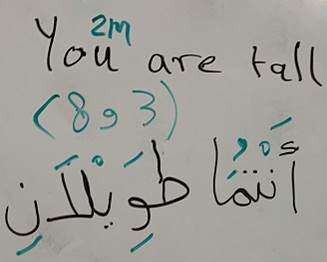 2m
You are tall
(8 و 3)
أَنْتُمَا طَوِيْلَانِ